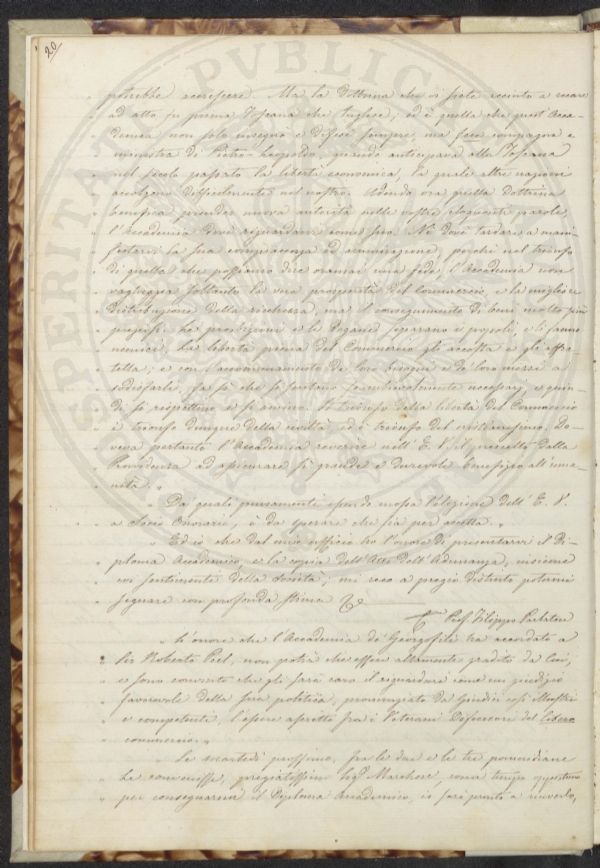 20
potrebbe accrescere. Ma la dottrina che vi siete accinto a recare
ad atto fu prima Toscana che Inglese; ed è quella che quest'Acca-
demia non solo insegnò e difese sempre, ma fece compagna e
ministra di Pietro Leopoldo, quando anticipava alla Toscana
nel secolo passato la libertà economica, la quale altre nazioni
accolgono difficilmente nel nostro. Udendo ora quella Dottrina
benefica prender nuova autorità nelle vostre eloquenti parole,
l'Accademia deve riguardarvi come suo. Nè dove tardare a mani-
festarvi la sua compiacenza ed ammirazione, perchè nel trionfo
di quella che possiamo dire oramai una fede, l'Accademia non
vagheggia soltanto la vera prosperità del Commercio, e la migliore
distribuzione della ricchezza, ma il conseguimento di beni molto più
pregevoli. Le proibizioni e le Dogane separano i popoli, e li fanno
nemici; la libertà piena del Commercio gli accosta e gli affra-
tella; e con l'accomunamento de' loro bisogni e de' loro mezzi a
sodisfarli, fa sì che si sentano scambievolmente necessarj, e quin-
di si rispettino e si amino. Il trionfo della libertà del Commercio
è trionfo dunque della civiltà, ed è trionfo del cristianesimo. Do-
veva pertanto l'Accademia riverire nell'E. V. il prescelto dalla
Provvidenza ad assicurare sì grande e durevole benefizio all'uma-
nità. "
" Da quali pensamenti essendo mossa l'elezione dell'E. V.
a Socio Onorario, è da sperare che sia per accetta. "
" Ed io che dal mio ufficio ho l'onore di presentarvi il Di-
ploma Accademico, e la copia dell'Atto dell'Adunanza, insieme
coi sentimenti della Società, mi reco a pregio distinto potermi
segnare con profonda stima &
Prof. Filippo Parlatore
" L'onore che l'Accademia de' Georgofili ha accordato a
Sir Roberto Peel, non potrà che essere altamente gradito da Lui,
e sono convinto che gli sarà caro il riguardare come un giudizio
favorevole della sua politica, pronunziato da Giudici così illustri
e competenti, l'essere ascritto fra i Veterani Difensori del libero
commercio. "
" Se martedì prossimo, fra le due e le tre pomeridiane
Le convenisse, pregiatissimo Sigr. Marchese, come tempo opportuno
per consegnarmi il Diploma Accademico, io sarò pronto a riceverlo,